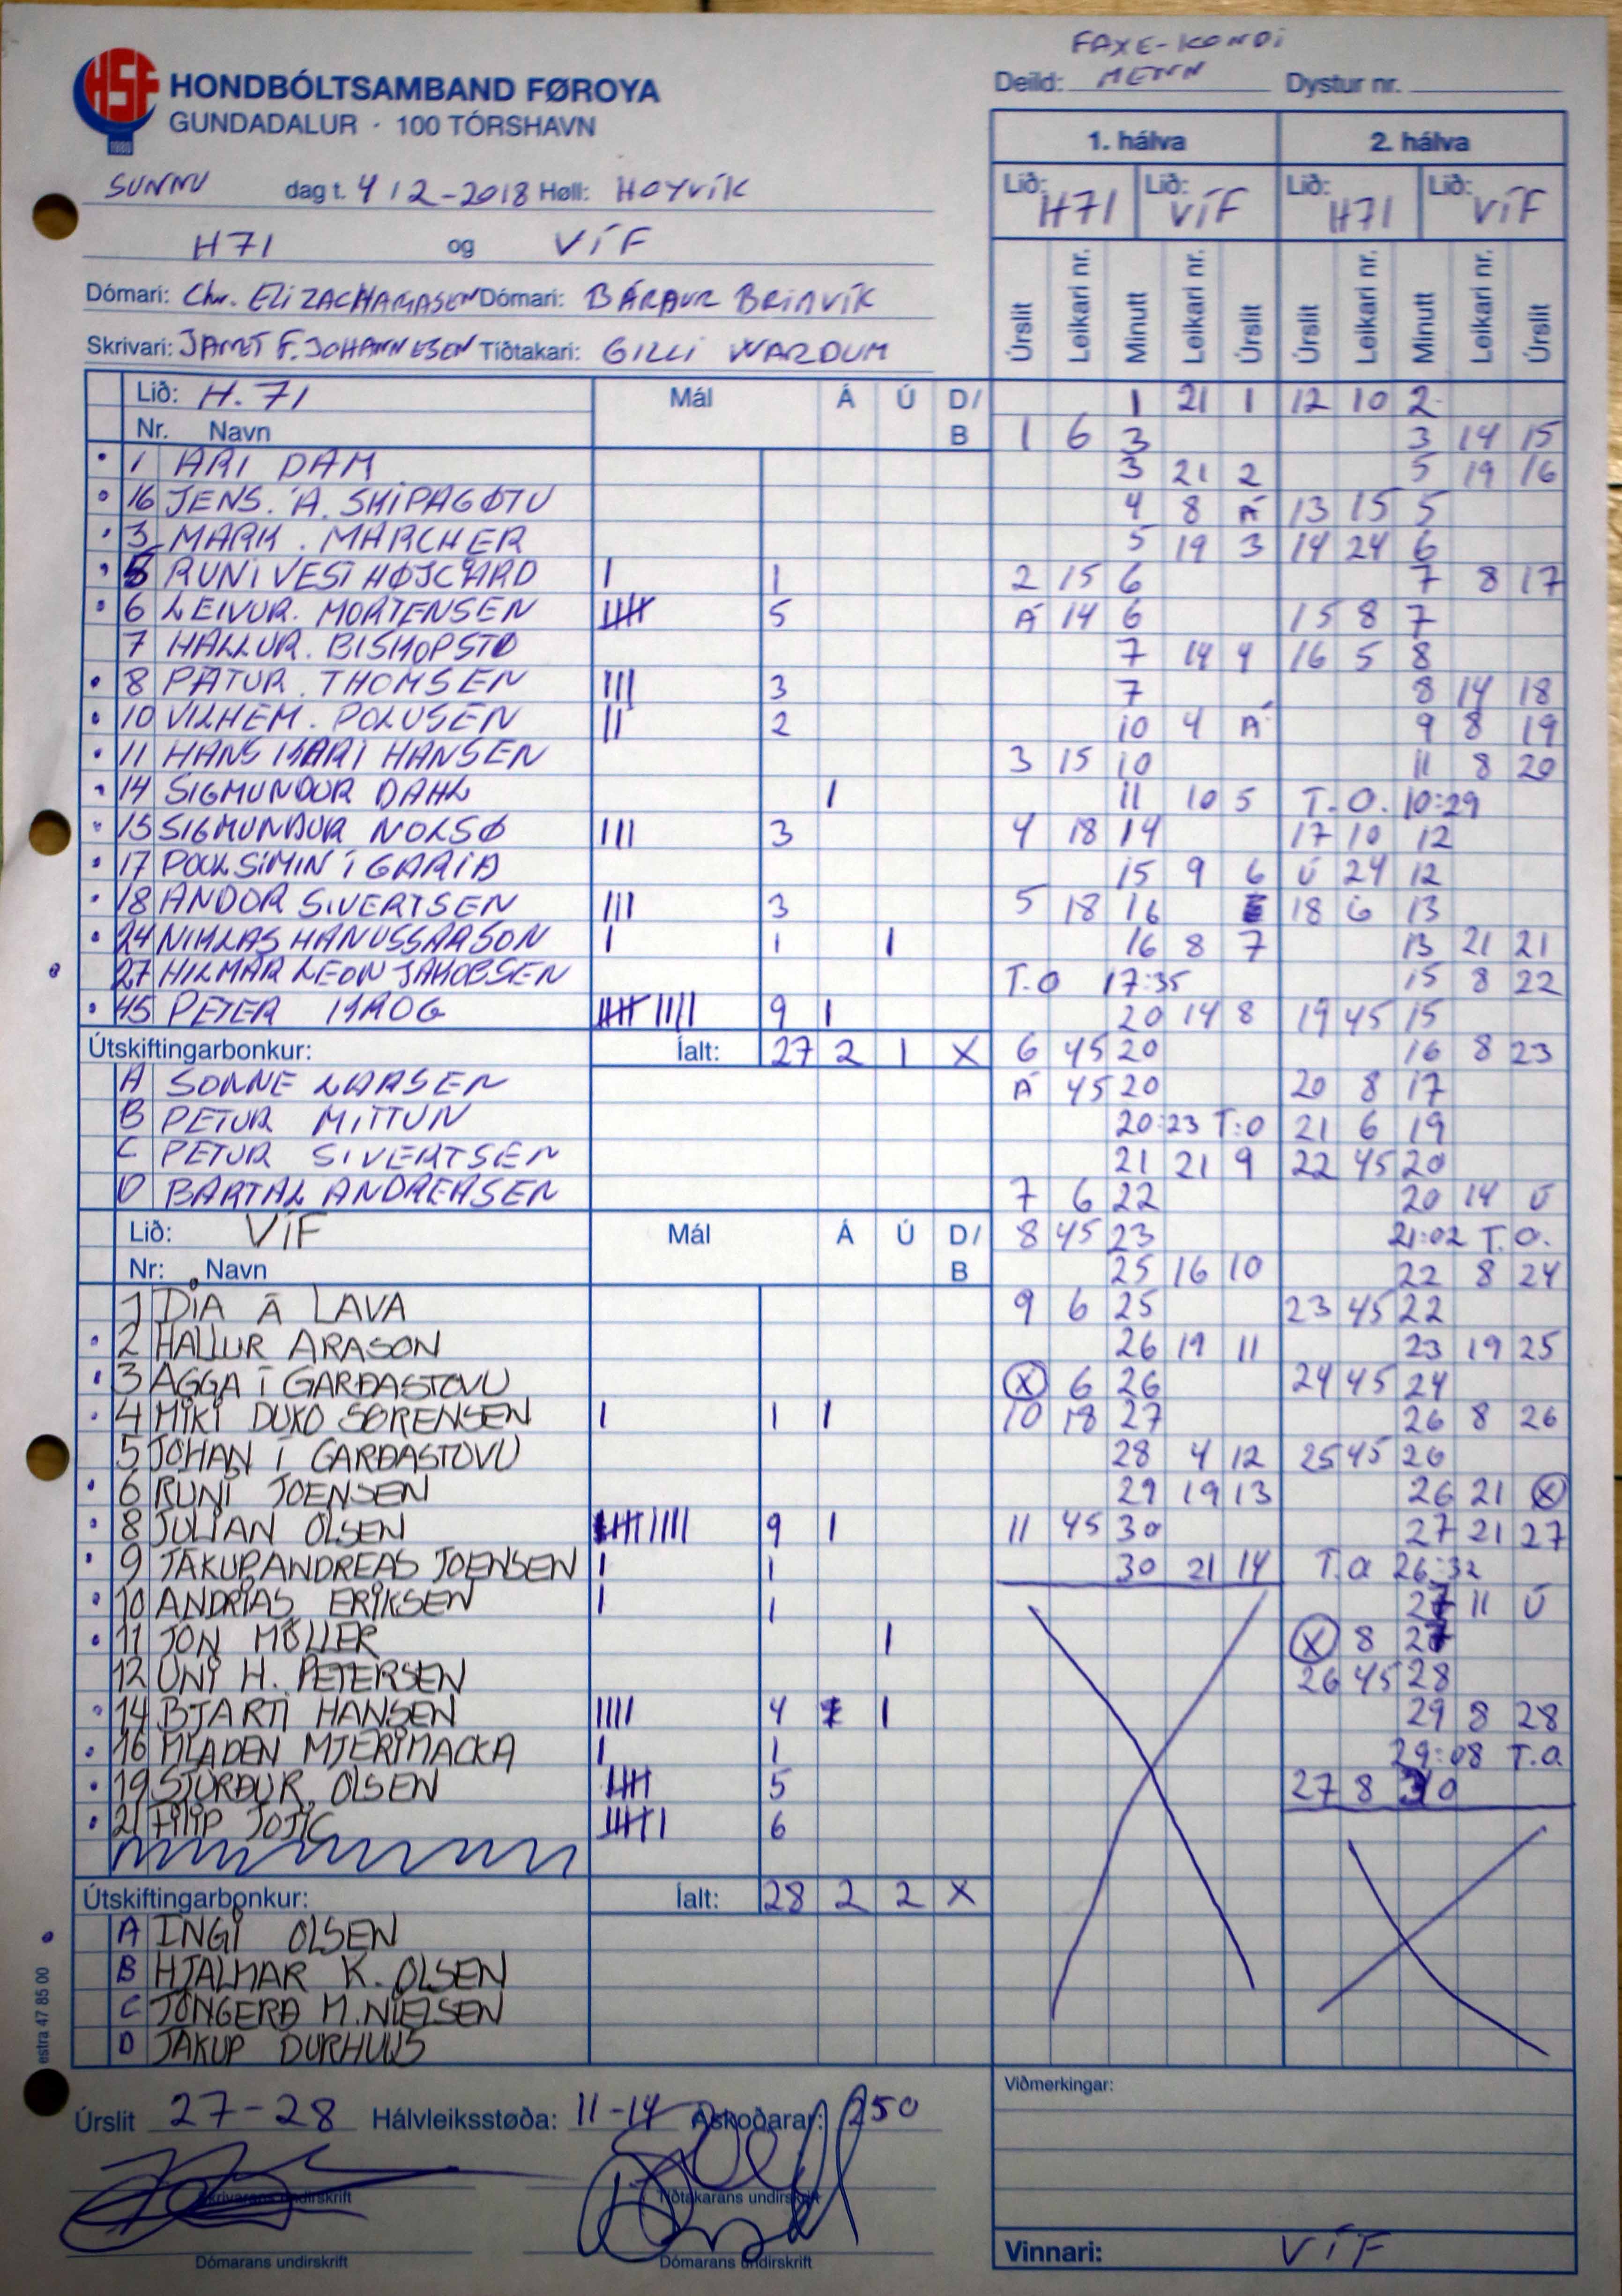 FAXE-KONDI
HSF
HONDBÓLTSAMBAND FØROYA
Deild: MENN Dystur nr.
GUNDADALUR · 100 TÓRSHAVN
1980
SUNNU dag t. 4/2-2018 Høll: HOYVÍK
H71 og VÍF
Dómari: Chr. ELI ZACHARIASEN Dómari: BÁRÐUR BRIMVÍK
Skrivari: JANET F. JOHANNESEN Tíðtakari: GILLI WARDUM
Lið: H.71 Mál Á Ú D/
Nr. Navn B
1 ARI DAM
16 JENS. Á. SKIPAGØTU
3 MARK. MARCHER
5 RUNI VEST HØJGARD | 1
6 LEIVUR. MORTENSEN |||| 5
7 HALLUR. BISKOPSTØ
8 PÆTUR. THOMSEN ||| 3
10 VILHEM. POLUSEN || 2
11 HANS KARI HANSEN
14 SIGMUNDUR DAHL 1
15 SIGMUNDUR NOLSØ ||| 3
17 POUL SIMIN Í GARÐA
18 ANDOR SIVERTSEN ||| 3
24 NIKLAS HANUSSARSON | 1 1
27 HILMAR LEON JAKOBSEN
45 PETER KROG |||| |||| 9 1
Útskiftingarbonkur: Íalt: 27 2 1 X
A SONNE LARSEN
B PETUR MITTUN
C PETUR SIVERTSEN
D BARTAL ANDREASEN
Lið: VÍF Mál Á Ú D/
Nr: Navn B
1 DIA Á LAVA
2 HALLUR ARASON
3 ÁGGA Í GARÐASTOVU
4 MIKI DUKO SØRENSEN | 1 1
5 JÓHAN Í GARÐASTOVU
6 RÚNI JOENSEN
8 JULIAN OLSEN |||| |||| 9 1
9 JÁKUP ANDREAS JOENSEN | 1
10 ANDRIAS ERIKSEN | 1
11 JÓN MÖLLER 1
12 UNI H. PETERSEN
14 BJARTI HANSEN |||| 4 1
16 MLADEN MJERIMACKA | 1
19 SJÚRÐUR OLSEN |||| 5
21 FILIP JOTIC |||| | 6
Útskiftingarbonkur: Íalt: 28 2 2 X
A INGI OLSEN
B HJALMAR K. OLSEN
C TÓNGERÐ M. NIELSEN
D JÁKUP DURHUUS
Úrslit 27-28 Hálvleiksstøða: 11-14 Áskoðarar: 250
Skrivarans undirskrift Tíðtakarans undirskrift
Dómarans undirskrift Dómarans undirskrift
estra 47 85 00
1. hálva 2. hálva
Lið: H71 Lið: VÍF Lið: H71 Lið: VÍF
Úrslit Leikari nr. Minutt Leikari nr. Úrslit Úrslit Leikari nr. Minutt Leikari nr. Úrslit
1 21 1 12 10 2
1 6 3 3 14 15
3 21 2 5 19 16
4 8 Á 13 15 5
5 19 3 14 24 6
2 15 6 7 8 17
Á 14 6 15 8 7
7 14 4 16 5 8
7 8 14 18
10 4 Á 9 8 19
3 15 10 11 8 20
11 10 5 T.O. 10:29
4 18 14 17 10 12
15 9 6 Ú 24 12
5 18 16 18 6 13
16 8 7 13 21 21
T.O 17:35 15 8 22
20 14 8 19 45 15
6 45 20 16 8 23
Á 45 20 20 8 17
20:23 T:O 21 6 19
21 21 9 22 45 20
7 6 22 20 14 Ú
8 45 23 21:02 T.O.
25 16 10 22 8 24
9 6 25 23 45 22
26 19 11 23 19 25
X 6 26 24 45 24
10 18 27 26 8 26
28 4 12 25 45 26
29 19 13 26 21 X
11 45 30 27 21 27
30 21 14 T.O 26:32
27 11 Ú
X 8 27
26 45 28
29 8 28
29:08 T.O.
27 8 30
Viðmerkingar:
Vinnari: VÍF